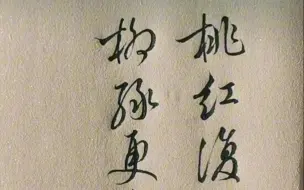 桃红復
柳緑更